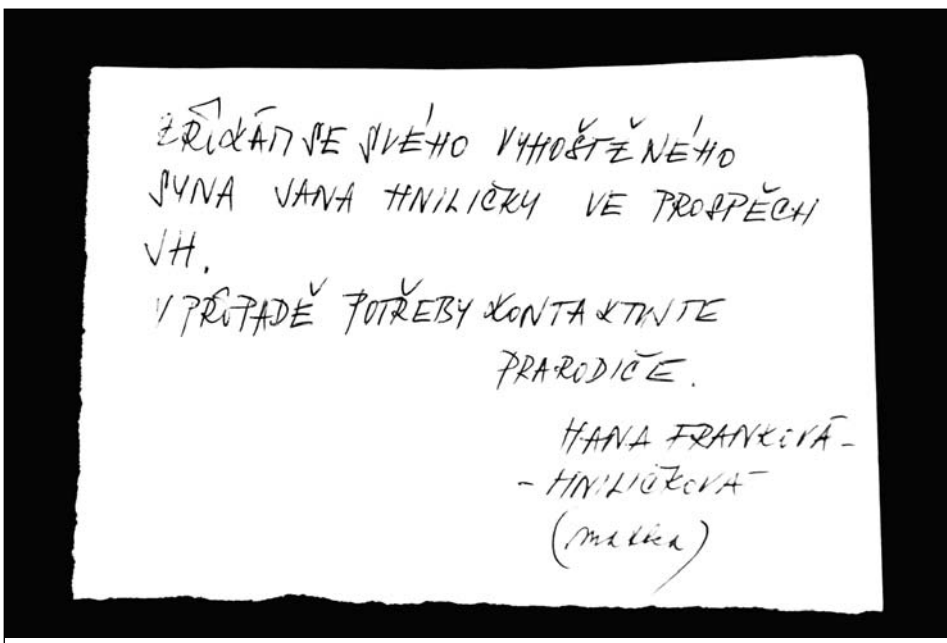 ZŘÍKÁM SE SVÉHO VYHOŠTĚNÉHO
SYNA JANA HNILIČKY VE PROSPĚCH
JH.
V PŘÍPADĚ POTŘEBY KONTAKTUJTE
PRARODIČE.
HANA FRANKOVÁ-
- HNILIČKOVÁ
(matka)